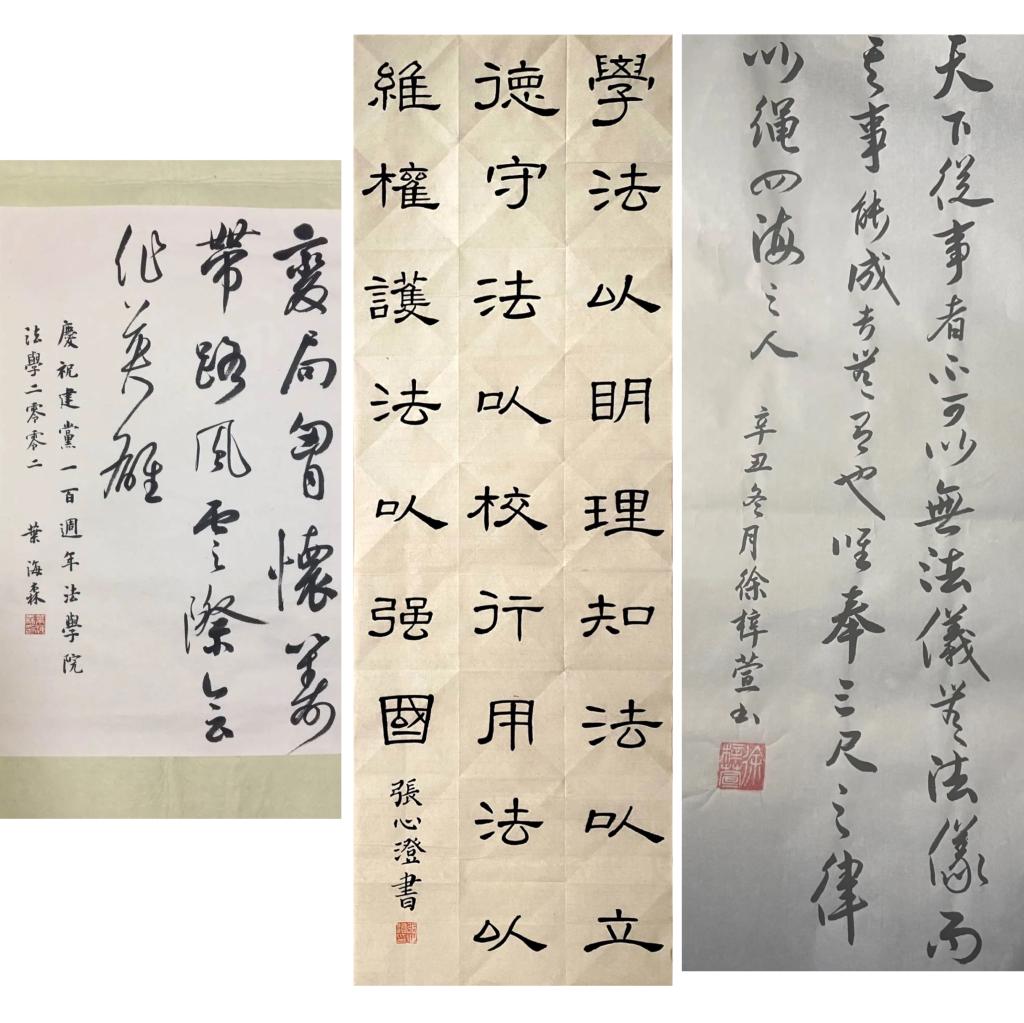 變局胷懷籌
帶路風雲際會
作英雄
慶祝建黨一百週年法學院
法學二零零二 葉海森
學法以明理知法以立
德守法以校行用法以
維權護法以强國
張心澄書
天下從事者不可以無法儀無法儀而
其事能成者無有也唯奉三尺之律
以繩四海之人 辛丑冬月徐梓萱書
徐梓萱